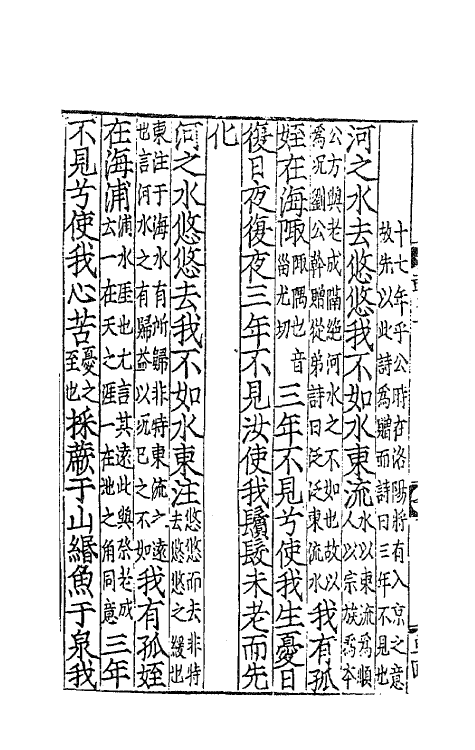 十七年乎公時在洛陽將有入京之意
故先以此詩為贈而詩曰三年不見也
河之水去悠悠我不如水東流水以東流為順人以宗族為本
公方與老成隔絕河水之不如也故以為况劉公幹贈從弟詩曰泛泛東流水我有孤
姪在海陬陬隅也音甾尤切三年不見兮使我生憂日
復日夜復夜三年不見汝使我鬢髮未老而先
化
河之水悠悠去我不如水東注悠悠而去非特去悠悠之緩也
東注于海水有所歸非特東流之遠也言河水之有歸益以况已之不如我有孤姪
在海浦浦水涯也尤言其遠此與祭老成云一在天之涯一在地之角同意三年
不見兮使我心苦憂之至也採蕨于山緡魚于泉我